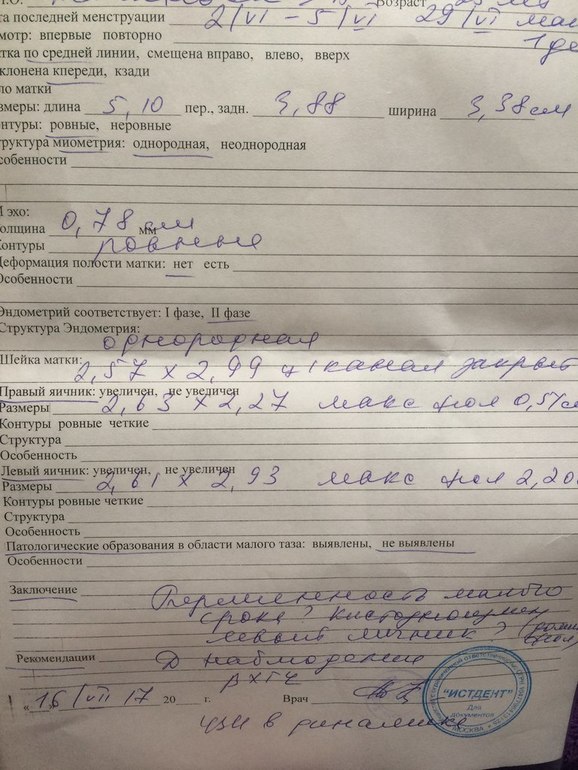 Возраст
та последней менструации 2/VI – 5/VI 29/VI
мотр: впервые повторно 1 де
тка по средней линии, смещена вправо, влево, вверх
клонена кпереди, кзади
ло матки
змеры: длина 5,10 пер., задн. 3,88 ширина 3,38 см
онтуры: ровные, неровные
руктура миометрия: однородная, неоднородная
собенности
И эхо:
олщина 0,78 см мм
Контуры ровные
Деформация полости матки: нет есть
Особенности
Эндометрий соответствует: I фазе, II фазе
Структура Эндометрия:
однородная
Шейка матки: 2,57 х 2,99 ц/канал закрыт
Правый яичник: увеличен, не увеличен
Размеры 2,63 х 2,27 макс фол 0,51 см
Контуры ровные четкие
Структура
Особенность
Левый яичник: увеличен, не увеличен
Размеры 2,61 х 2,93 макс фол 2,20
Контуры ровные четкие
Структура
Особенность
Патологические образования в области малого таза: выявлены, не выявлены
Особенности
Заключение Беременность малого
срока? Киста
левый яичник?
Рекомендации Д наблюдение
βХГЧ
« 16 / VII 17 20 г. Врач
УЗИ в динамике
"ИСТДЕНТ"
Для
документов
МОСКВА